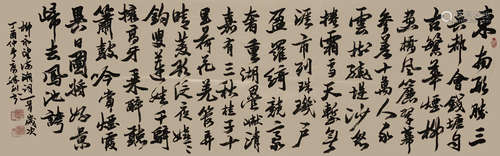 東南形勝三
吳都會錢塘自
古繁華煙柳
畫橋風簾翠幕
參差十萬人家
雲樹繞堤沙怒
濤捲霜雪天塹無
涯市列珠璣戶
盈羅綺競豪
奢重湖疊巘清
嘉有三秋桂子十
里荷花羌管弄
晴菱歌泛夜嬉嬉
釣叟蓮娃千騎
擁高牙乘醉聽
簫鼓吟賞煙霞
異日圖將好景
歸去鳳池誇
柳永望海潮詞一首歲次
丁酉仲